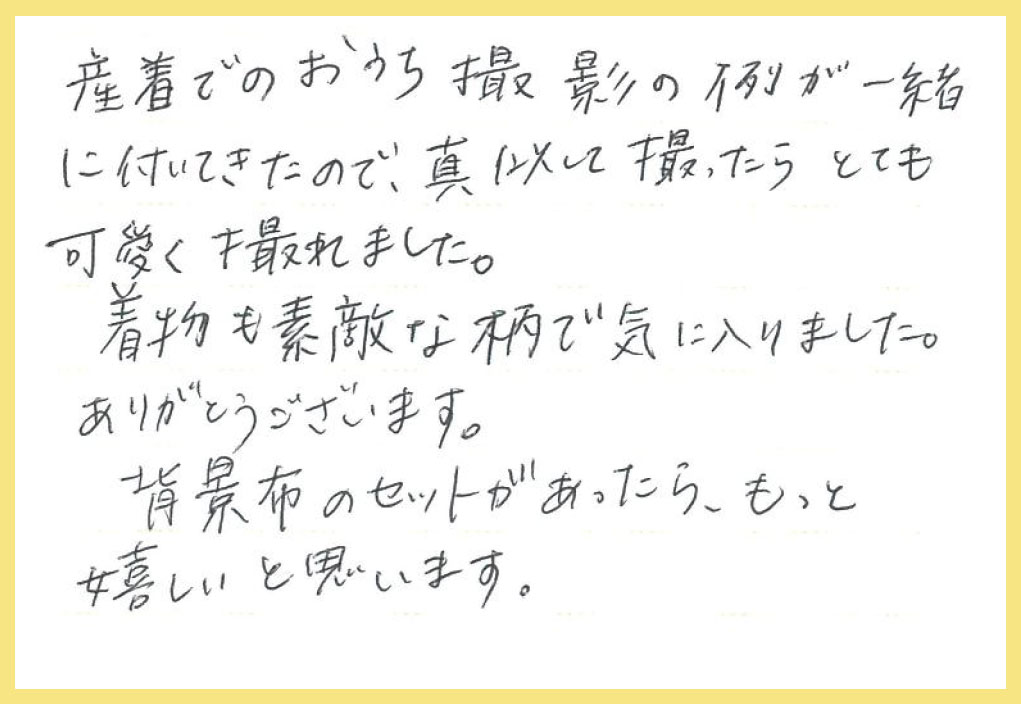 産着でのおうち撮影の例が一緒
に付いてきたので、真似して撮ったらとても
可愛く撮れました。
着物も素敵な柄で気に入りました。
ありがとうございます。
背景布のセットがあったら、もっと
嬉しいと思います。